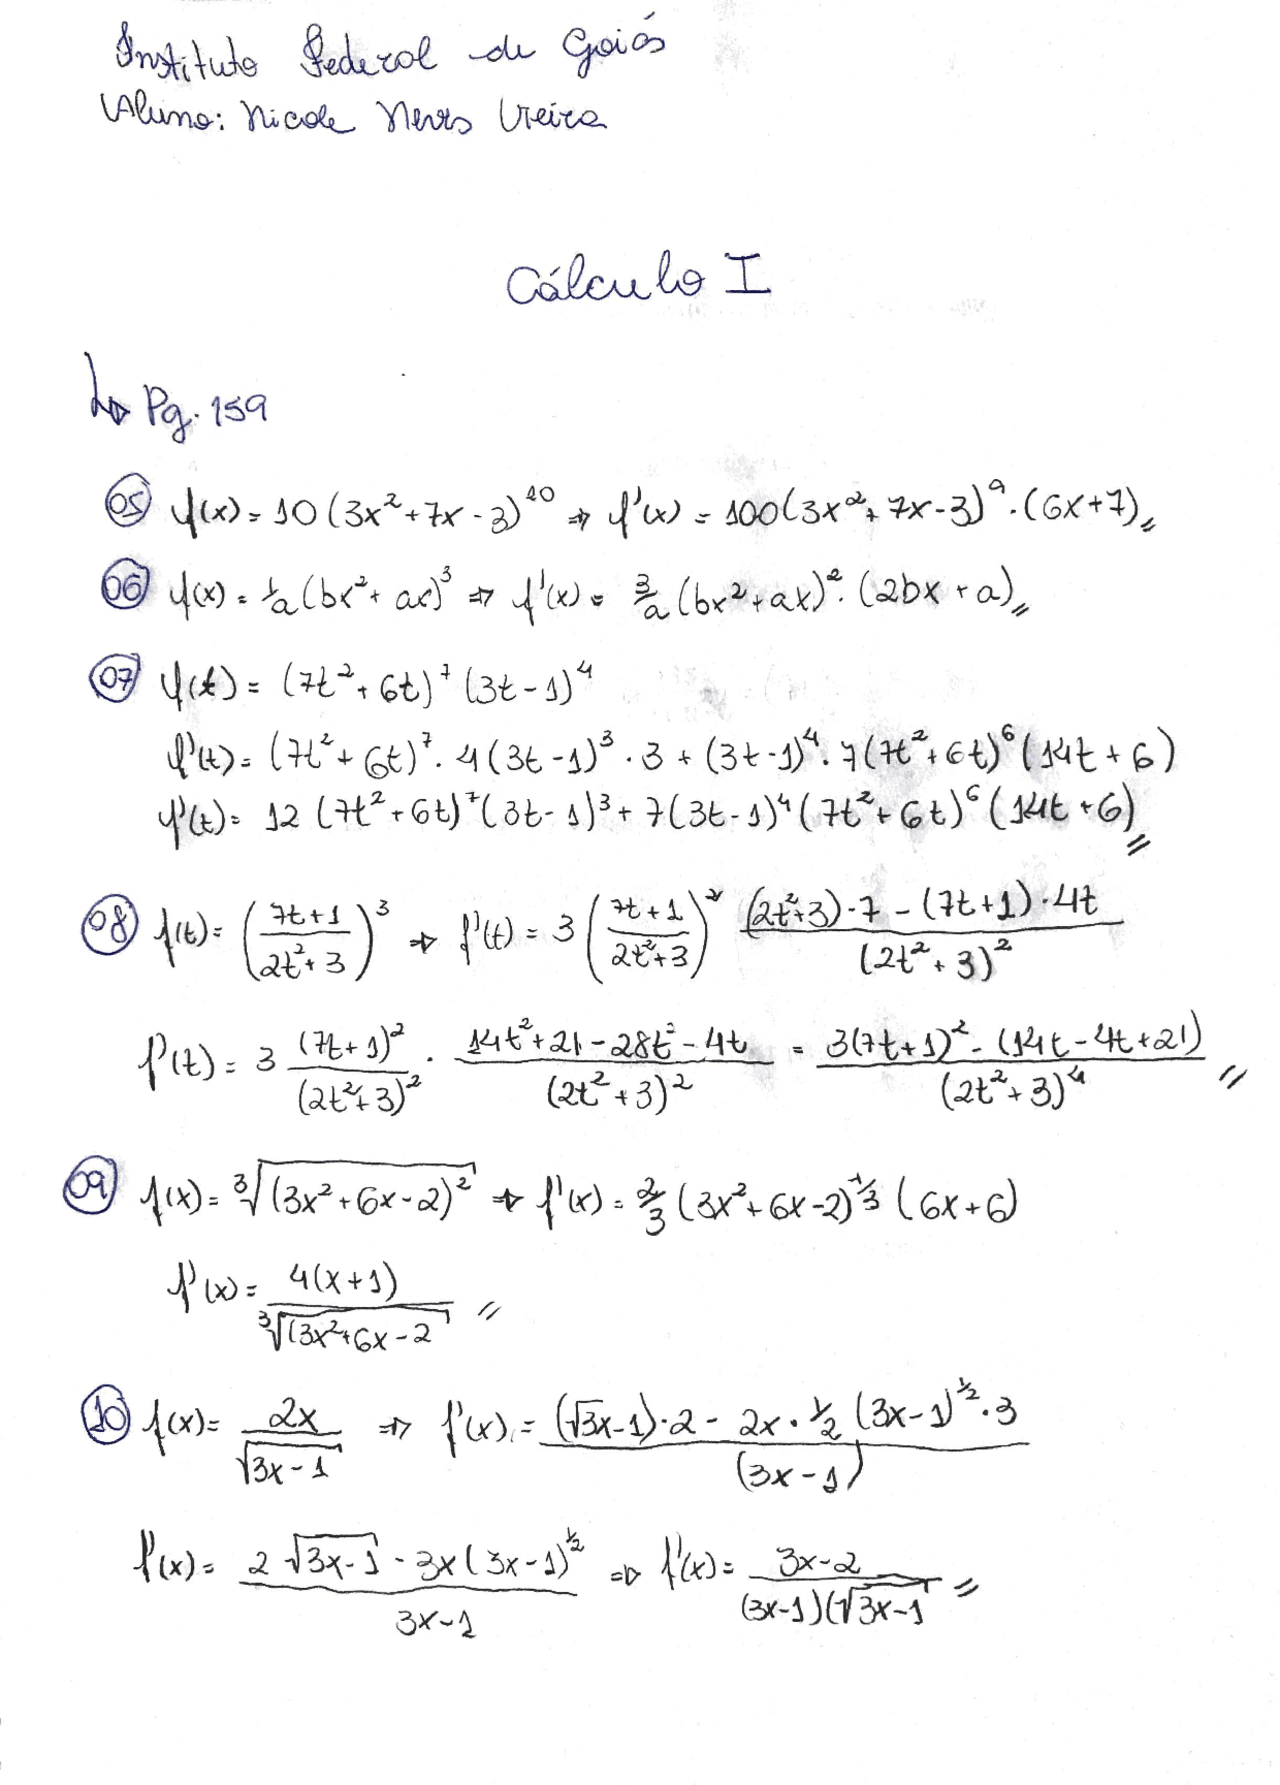 Instituto Federal de Goiás
Aluno: Nicole Neves Vieira
Cálculo I
↳ Pg. 159
05 f(x) = 10(3x²+7x-3)¹⁰ ⇒ f'(x) = 100(3x²+7x-3)⁹·(6x+7)
06 f(x) = 1/a (bx²+ax)³ ⇒ f'(x) = 3/a (bx²+ax)²·(2bx+a)
07 f(t) = (7t²+6t)⁷(3t-1)⁴
f'(t) = (7t²+6t)⁷·4(3t-1)³·3+(3t-1)⁴·7(7t²+6t)⁶(14t+6)
f'(t) = 12(7t²+6t)⁷(3t-1)³+7(3t-1)⁴(7t²+6t)⁶(14t+6)
08 f(t) = ((7t+1)/(2t²+3))³ ⇒ f'(t) = 3((7t+1)/(2t²+3))² ((2t²+3)·7-(7t+1)·4t)/(2t²+3)²
f'(t) = 3 (7t+1)²/(2t²+3)² · (14t²+21-28t²-4t)/(2t²+3)² = 3(7t+1)²-(14t-4t+21)/(2t²+3)⁴
09 f(x) = ³√(3x²+6x-2)² ⇒ f'(x) = 2/3 (3x²+6x-2)^-1/3 (6x+6)
f'(x) = 4(x+1)/³√(3x²+6x-2
10 f(x) = 2x/√3x-1 ⇒ f'(x) = ((√3x-1)·2-2x·1/2(3x-1)^1/2·3)/(3x-1)
f'(x) = (2√3x-1-3x(3x-1)^1/2)/3x-1 ⇒ f'(x) = 3x-2/(3x-1)(√3x-1